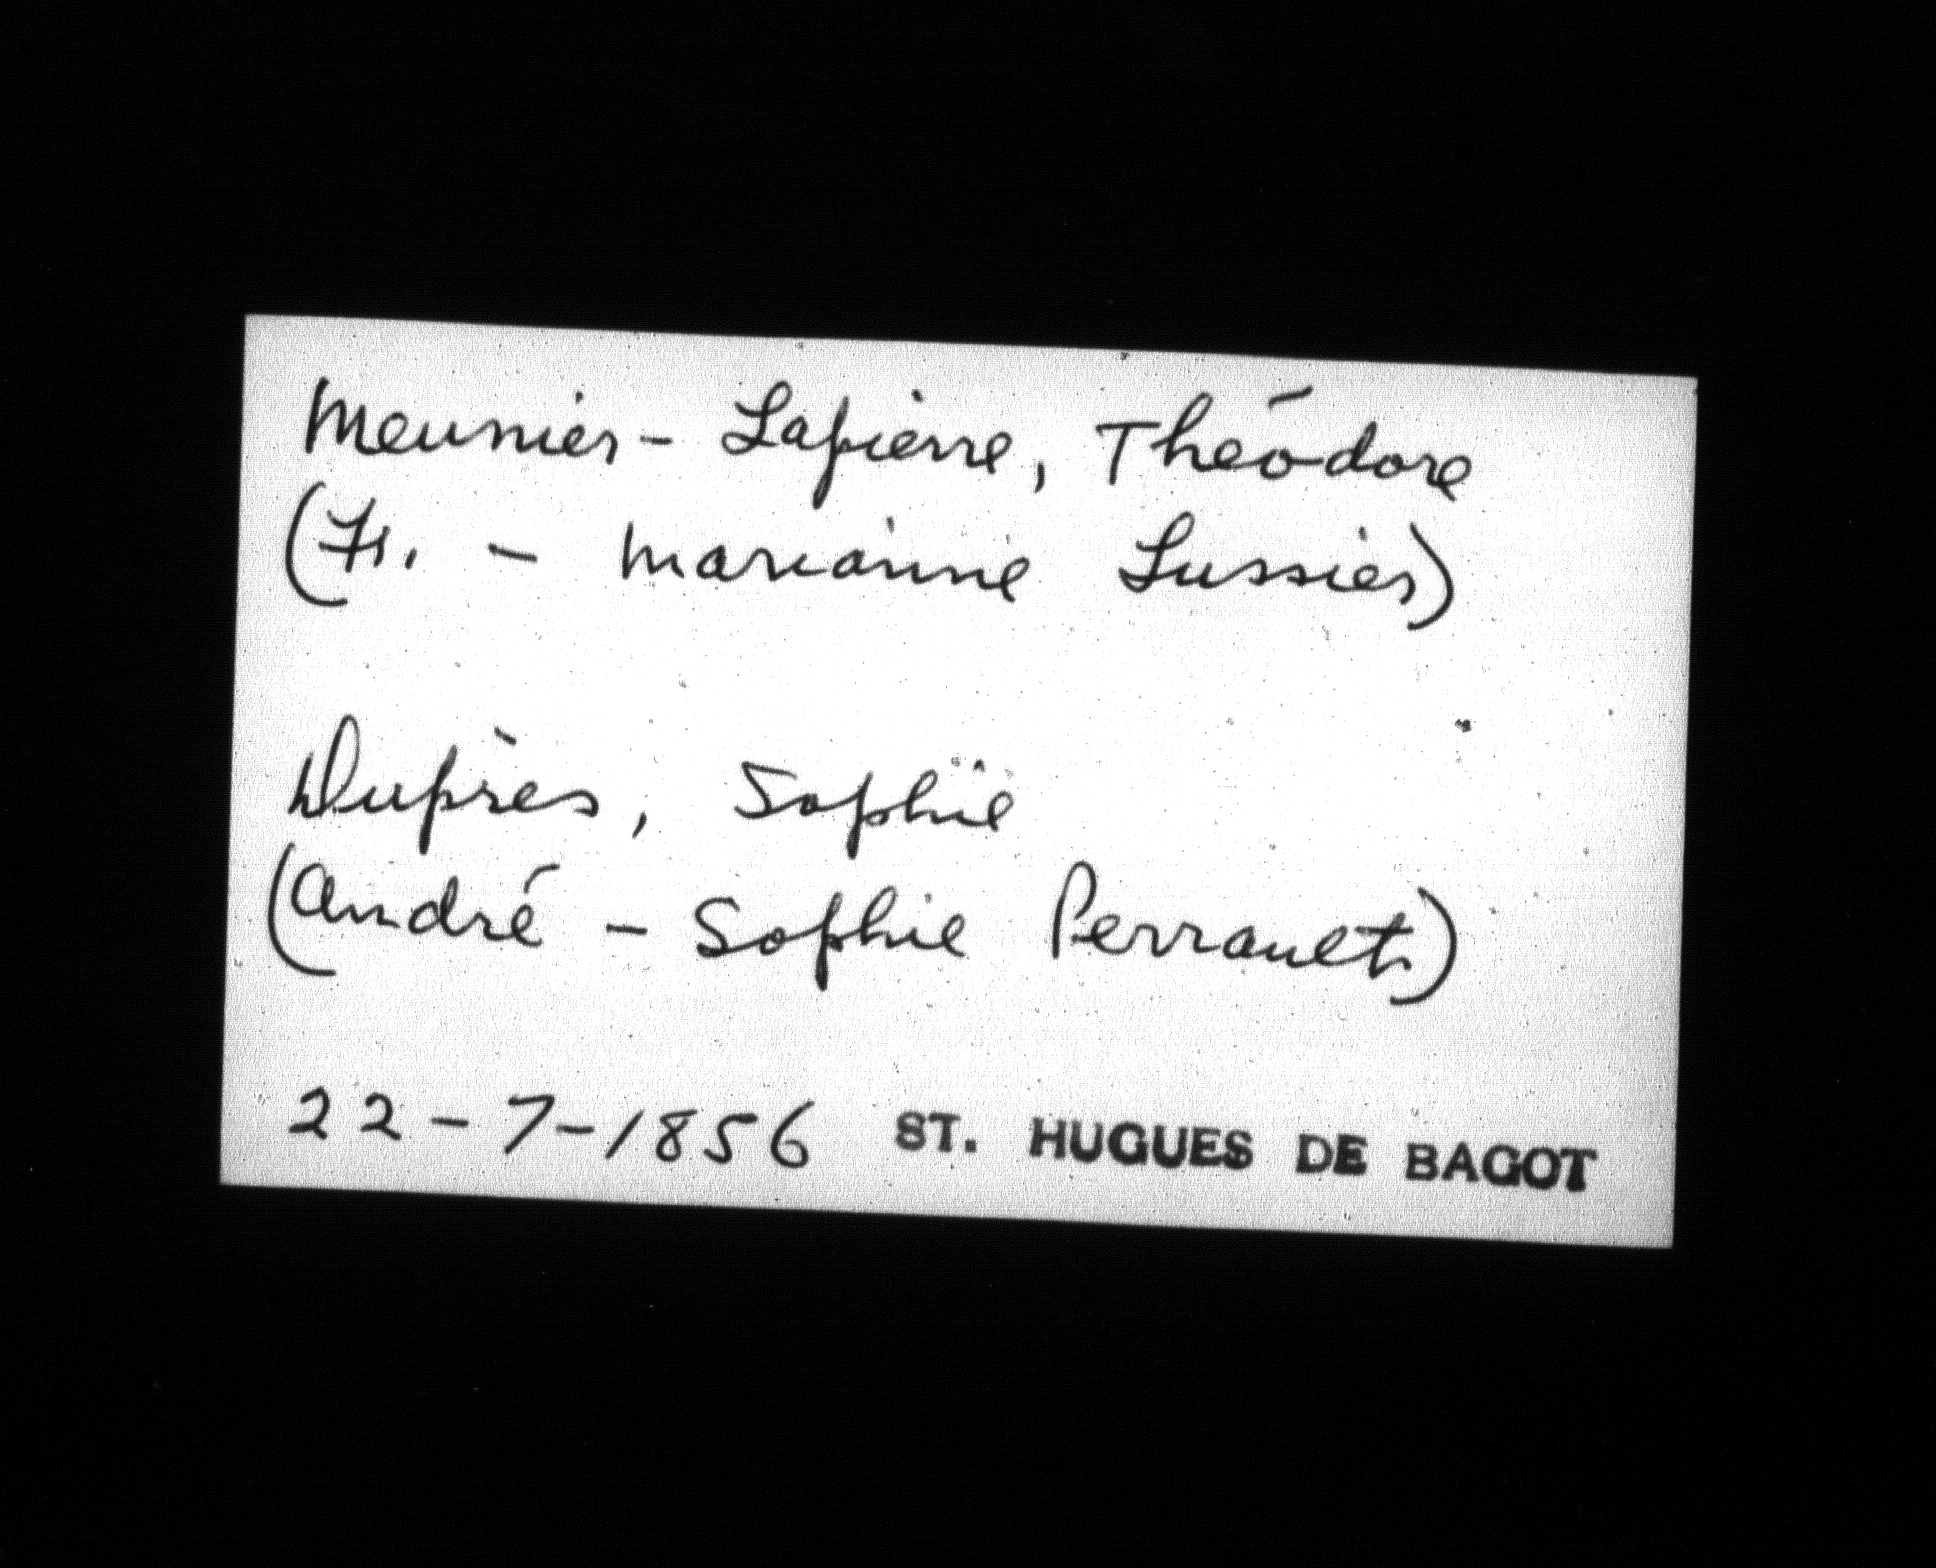 Meunier-Lapierre, Théodore
(Fr. - Marianne Lussier)
Duprès, Sophie
(André - Sophie Perrault)
22-7-1856 ST. HUGUES DE BAGOT